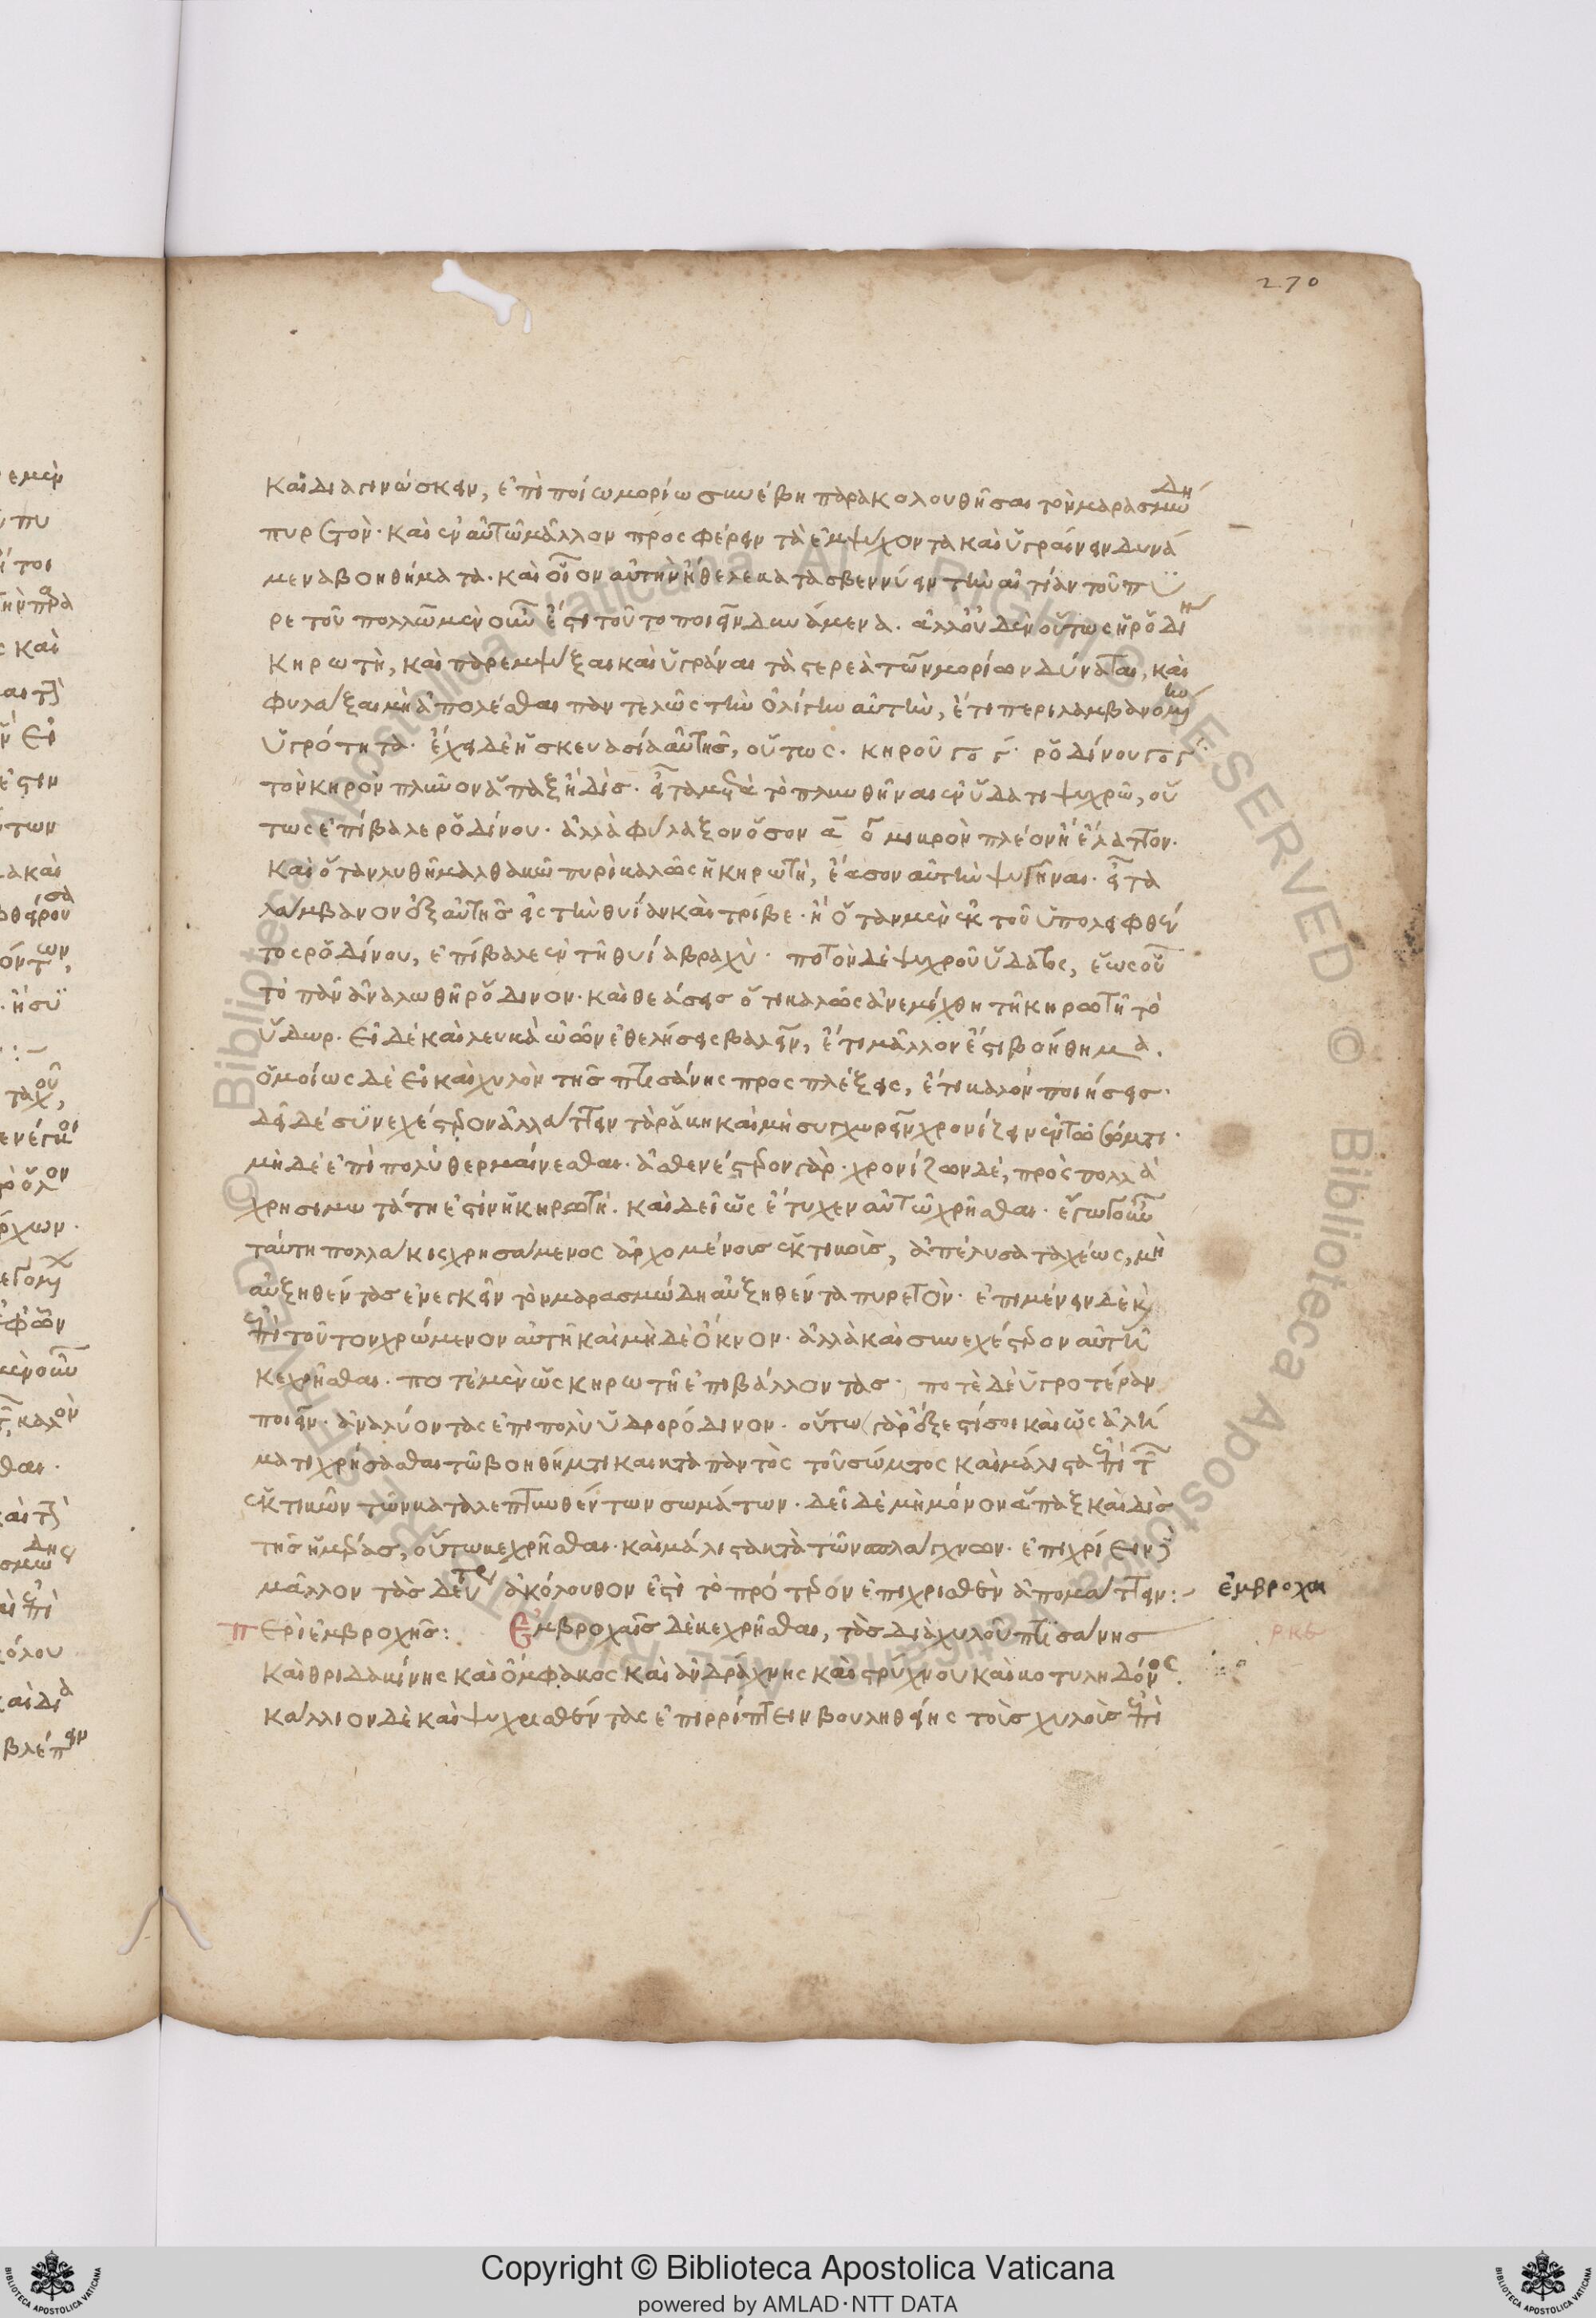 270
καὶ διαγινώσκειν, ἐπὶ ποίω μορίω συνέβη παρακολουθῆσαι τὸν μαρασμώδη
πυρετόν· καὶ ἐν αὐτῶ μᾶλλον προσφέρειν τὰ ἐμψύχοντα καὶ ὑγραίνειν δυνά
μενα βοηθήματα· καὶ οἷον αὐτὴν ἤθελε κατασβεννύειν τὴν αἰτίαν τοῦ πυ
ρετοῦ πολλῶν μὲν οὖν ἐστι τοῦτο ποιεῖν δυνάμενα. ἀλλ' οὐδὲν οὕτως ἡ ῥοδίνη
κηρωτὴ, καὶ παρεμψύξαι καὶ ὑγρᾶναι τὰ στερεὰ τῶν μορίων δύναται, καὶ
φυλάξαι μὴ ἀπολέσθαι παντελῶς τὴν ὀλίγην αὐτὴν, ἔτι περιλαμβανομένην
ὑγρότητα· ἔχει δὲ ἡ σκευασία αὐτῆς, οὕτως· κηροῦ γο γ· ῥοδίνου γο γ·
τὸν κηρὸν πλῦνον ἅπαξ ἢ δίς· εἶτα μετὰ τὸ πλυνθῆναι ἐν ὕδατι ψυχρῶ, οὕ
τως ἐπίβαλε ῥοδίνου· ἀλλὰ φύλαξον ὅσον α ο μικρὸν πλέον ἢ ἔλαττον·
καὶ ὅταν λυθῆ μαλθακῶ πυρὶ καλῶς ἡ κηρωτὴ, ἔασον αὐτὴν ψυγῆναι· εἶτα
λάμβανον ἐξ αὐτῆς εἰς τὴν θυίαν καὶ τρίβε· ἢ ὅταν μὲν ἐκ τοῦ ὑπολειφθέν
τος ῥοδίνου, ἐπίβαλε ἐν τῆ θυία βραχὺ· ποτὸν δὲ ψυχροῦ ὕδατος, ἕως οὗ
τὸ πᾶν ἀναλωθῆ ῥόδινον· καὶ θεάσεις ὅτι καλῶς ἀνεμίχθη τῆ κηρωτῆ τὸ
ὕδωρ. εἰ δὲ καὶ λευκὰ ὠῶν ἐθελήσεις βαλεῖν, ἔτι μᾶλλον ἔστι βοήθημα.
ὁμοίως δὲ εἰ καὶ χυλὸν τῆς πτισάνης προσπλέξεις, ἔτι καλὸν ποιήσεις·
δεῖ δὲ συνεχέστερον ἀλλάττειν τὰ ῥάκη καὶ μὴ συγχωρεῖν χρονίζειν ἐν τῶ σώματι·
μὴ δὲ ἐπὶ πολὺ θερμαίνεσθαι· ἀσθενέστερον γὰρ· χρονίζων δὲ, πρὸς πολλὰ
χρησιμωτάτη ἐστὶν ἡ κηρωτὴ. καὶ δεῖ ὡς ἔτυχεν αὐτῶ χρῆσθαι· ἐγὼ γοῦν
ταύτη πολλάκις χρησάμενος ἀρχομένοις ἑκτικοῖς, ἀπέλυσα ταχέως, μὴ
αὐξηθέντας ἐνεγκεῖν τὸν μαρασμώδη αὐξηθέντα πυρετὸν· ἐπιμένειν δὲ καὶ
ἐπὶ τοῦτον χρώμενον αὐτῆ καὶ μὴ δὲ ὀκνον· ἀλλὰ καὶ συνεχέστερον αὐτῆ
κεχρῆσθαι· ποτὲ μὲν ὡς κηρωτῆ ἐπιβάλλοντας· ποτὲ δὲ ὑγροτέραν
ποιεῖν· ἀναλύοντας ἐπιπολὺ ὑδρορόδινον· οὕτω γὰρ ἔξεστί σοι καὶ ὡς ἀλεί
ματι χρήσασθαι τῶ βοηθήματι καὶ κατὰ παντὸς τοῦ σώματος καὶ μάλιστα ἐπὶ τῶν
ἑκτικῶν τῶν καταλεπτυνθέντων σωμάτων· δεῖ δὲ μὴ μόνον ἅπαξ καὶ δὶς
τῆς ἡμέρας, οὕτω κεχρῆσθαι· καὶ μάλιστα κατὰ τῶν σπλάγχνων· ἐπιχρίειν
μᾶλλον τὰς δευτερ ἀκόλουθον ἐστὶ τὸ πρότερον ἐπιχρισθὲν ἀπομάττειν:-
ἐμβροχαι
Περὶ ἐμβροχῆς: Ἐμβροχαῖς δὲ κεχρῆσθαι, τὰς διὰ χυλοῦ πτισάνης
ρκε
καὶ θριδακίνης καὶ ὄμφακος καὶ ἀνδράχνης καὶ στρύχνου καὶ κοτυληδόνος.
κάλλιον δὲ καὶ ψυχρισθέντας ἐπιρρίπτειν βουληθείης τοῖς χυλοῖς ἐπὶ
Copyright © Biblioteca Apostolica Vaticana
powered by AMLAD·NTT DATA